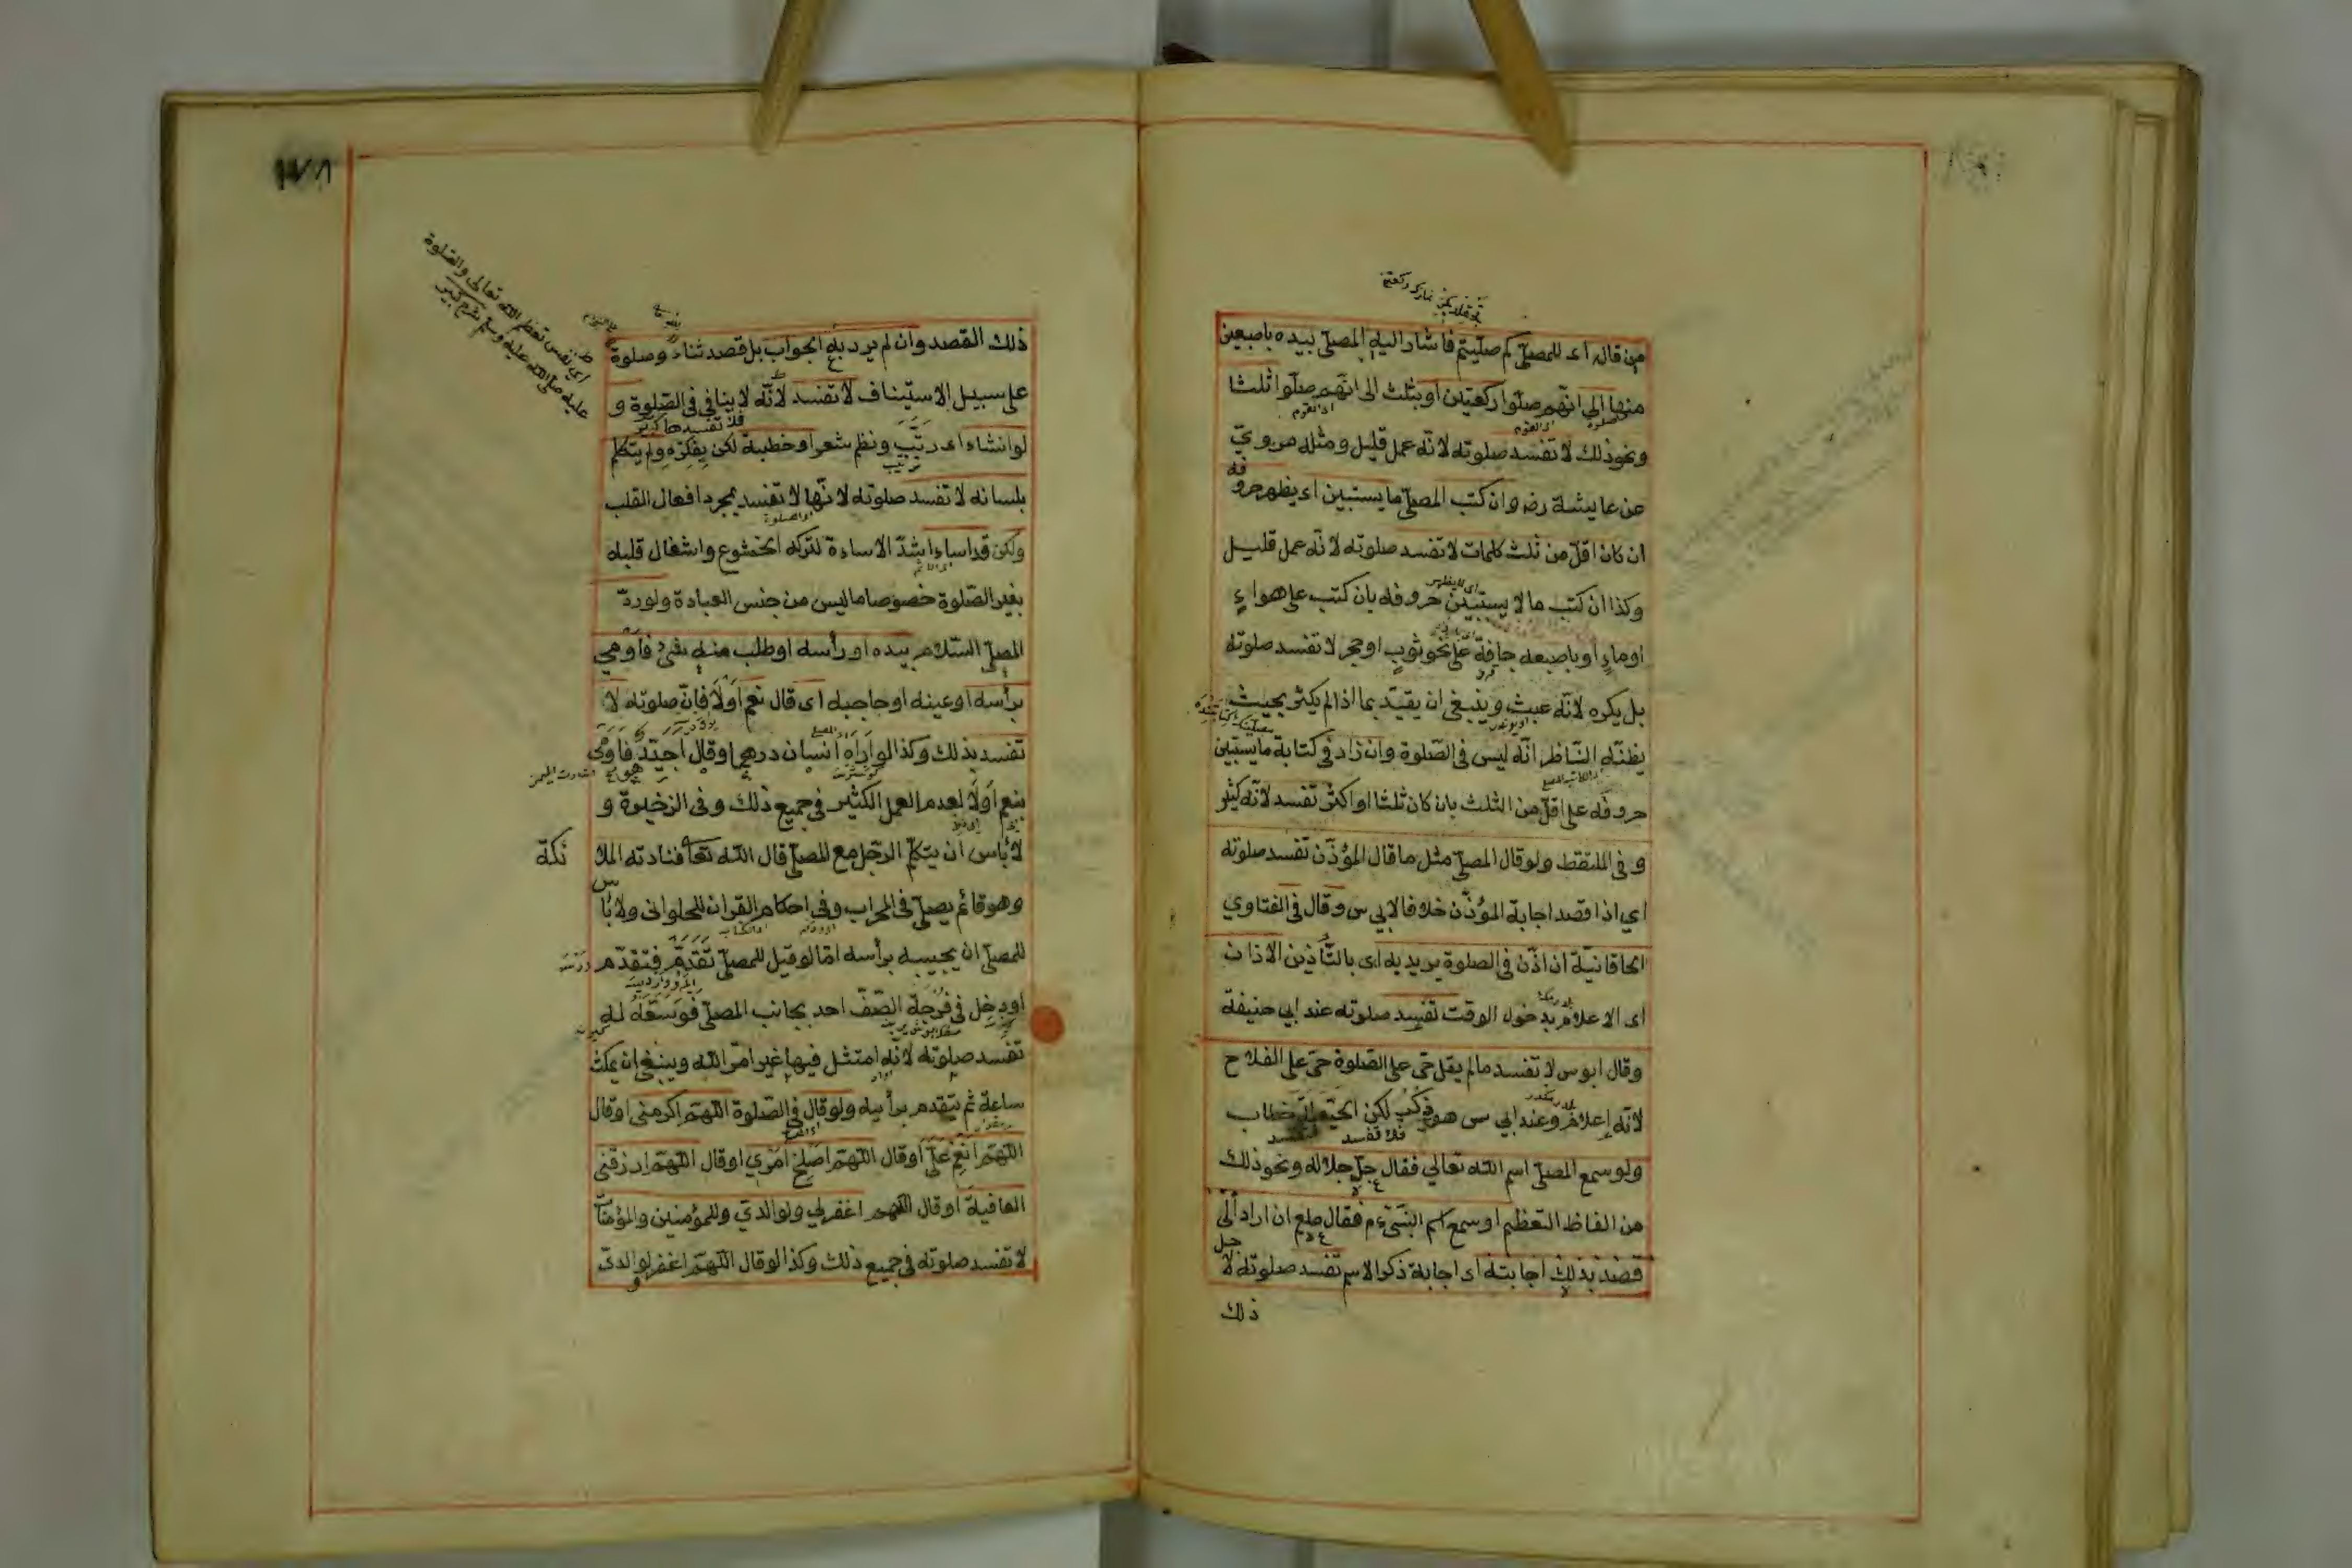 من قال اى للمصلّى كم صلّيتم فاشار اليه المصلّى بيده باصبعين
منها الى انّهم صلّوا ركعتين او بثلث الى انّهم صلّوا ثلثا
ونحو ذلك لا تفسد صلوته لانّه عمل قليل ومثله مروىّ
عن عايشة رضـ وان كتب المصلّى ما يستبين اى يظهر حروفه
ان كان اقلّ من ثلث كلمات لا تفسد صلوته لانّه عمل قليل
وكذا ان كتب ما لا يستبين حروفه بان كتب على هواءٍ
او ماءٍ او باصبعه جافّة على نحو ثوبٍ او حجر لا تفسد صلوته
بل يكره لانّه عبث وينبغى ان يقيّد بما اذا لم يكثر بحيث
يظنّه النّاظر انّه ليس فى الصّلوة وان زاد فى كتابة ما يستبين
حروفه على اقلّ من الثلث بان كان ثلثا او اكثر تفسد لانّه كثير
وفى الملتقط ولو قال المصلّى مثل ما قال المؤذّن تفسد صلوته
اى اذا قصد اجابة المؤذّن خلافا لابى س وقال فى الفتاوى
الخاقانيّة ان اذّن فى الصلوة يريد به اى بالتّأذين الاذان
اى الاعلام بدخول الوقت تفسد صلوته عند ابى حنيفة
وقال ابو س لا تفسد ما لم يقل حىّ على الصّلوة حىّ على الفلاح
لانّه إعلام وعند ابى س هو ذكر لكن خطاب
فلا تفسد فتفسد
ولو سمع المصلّى اسم الله تعالى فقال جلّ جلاله ونحو ذلك
من الفاظ التعظيم او سمع اسم النبىّ ءم فقال صلعم ان اراد اى
قصد بذلك اجابته اى اجابة ذكر الاسم تفسد صلوته لاجل
ذلك
ذلك القصد وان لم يرد به الجواب بل قصد ثناء وصلوة
على سبيل الاستيناف لا تفسد لانّه لا ينافى فى الصّلوة و
فلا تفسدها كبير
لو انشاء اى رتّب ونظم شعرا او خطبة لكن بفكره ولم يتكلم
بلسانه لا تفسد صلوته لانّها لا تفسد بمجرد افعال القلب
ولكن قد اساء اشدّ الاساءة لتركه الخشوع واشغال قلبه
بغير الصّلوة خصوصا ما ليس من جنس العبادة ولو ردّ
المصلّى السّلام بيده او رأسه او طلب منه شئ فأومى
برأسه او عينه او حاجبه اى قال نعم اَوْلَا فانّ صلوته لا
تفسد بذلك وكذا لو اَرَاه انسان درهما وقال اجيّد فأومى
بنعم اَوْلَا لعدم العمل الكثير فى جميع ذلك وفى الذخيرة و
لا بأس ان يتكلم الرّجل مع المصلّى قال الله تعا فنادته الملا
ئكة
وهو قائم يصلّى فى المحراب وفى احكام القران للحلوانى ولا بأس
للمصلّى ان يجيبه برأسه امّا لو قيل للمصلّى تقدّم فتقدّم
او دخل فى فرجة الصّفّ احد بجانب المصلّى فوسّعه له
تفسد صلوته لانّه امتثل فيها غير امر الله وينبغى ان يمكث
ساعة ثم يتقدم برأيه ولو قال فى الصّلوة اللهمّ اكرمنى او قال
اللهمّ انعم علىّ او قال اللهمّ اصلح امرى او قال اللهمّ ارزقنى
العافية او قال اللهم اغفر لى ولوالدىّ وللمؤمنين والمؤمنات
لا تفسد صلوته فى جميع ذلك وكذا لو قال اللهمّ اغفر لوالدىّ
اى نفس تعظيم الله تعالى والصّلوة
عليه صلى الله عليه وسلم كبير